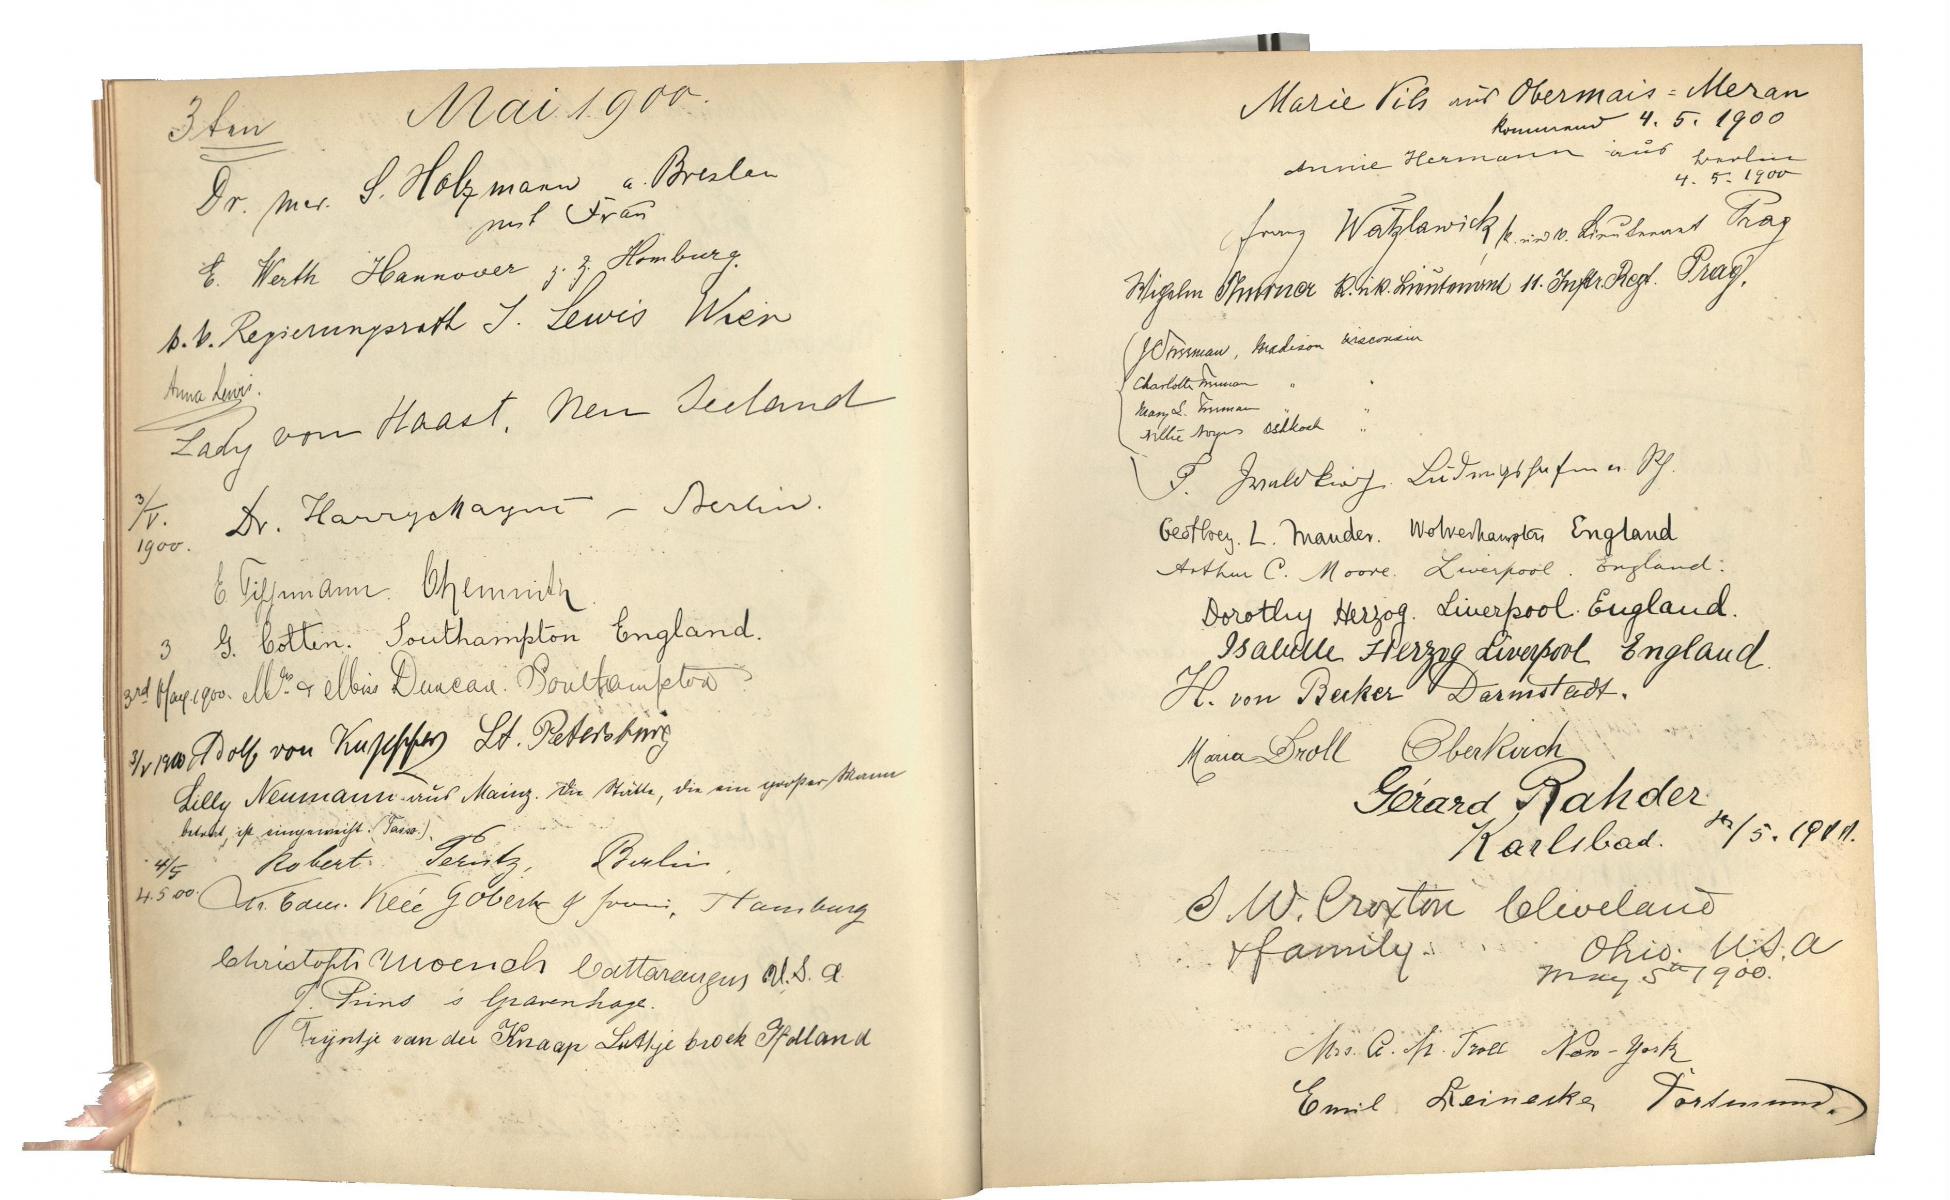 Mai 1900.
3ten
Dr. med. S. Holzmann a. Breslau
mit Frau
E. Werth Hannover z. Z. Homburg.
k. k. Regierungsrath J. Lewis Wien
Anna Lewis.
Lady von Haast, Neu Seeland
3/V. 1900. Dr. Harry Maync – Berlin.
E Tißmann. Chemnitz
3 G. Cotten. Southampton England.
3rd May 1900. Mrs & Miss Duncan. Southampton
3/V 1900 Adolf von Kupffer St. Petersburg
Lilly Neumann aus Mainz. Die Stätte, die ein großer Mann
betrat, ist eingeweiht. (Tasso.)
4/5 Robert Perutz, Berlin,
4.5.00. Hamburg
Christoph Moench Cattaraugus U.S.A
J. Prins 's Gravenhage.
Trijntje van der Knaap Lutjebroek Holland
Marie Vils aus Obermais = Meran
kommend 4. 5. 1900
Annie Hermann aus Berlin
4. 5. 1900
Franz Watzlawick, k. und k. Lieutenant Prag
k. u. k. Lieutenant 11. Inftr. Regt. Prag.
Madison Wisconsin
Charlotte Truman " "
Mary L. Truman " "
Nillie Noyes Oshkosh "
Ludwigshafen a. Rh.
Geoffrey. L. Mander. Wolverhampton England
Arthur C. Moore. Liverpool. England.
Dorothy Herzog. Liverpool. England.
Isabelle Herzog Liverpool England.
H. von Becker Darmstadt.
Maria Droll Oberkirch
Gérard Rahder
Karlsbad. /5. 1900.
J W. Croxton Cleveland
& family. Ohio. U.S.A
May 5th 1900.
Mrs. A. M. Troll New-York
Emil Reinecke Dortmund.